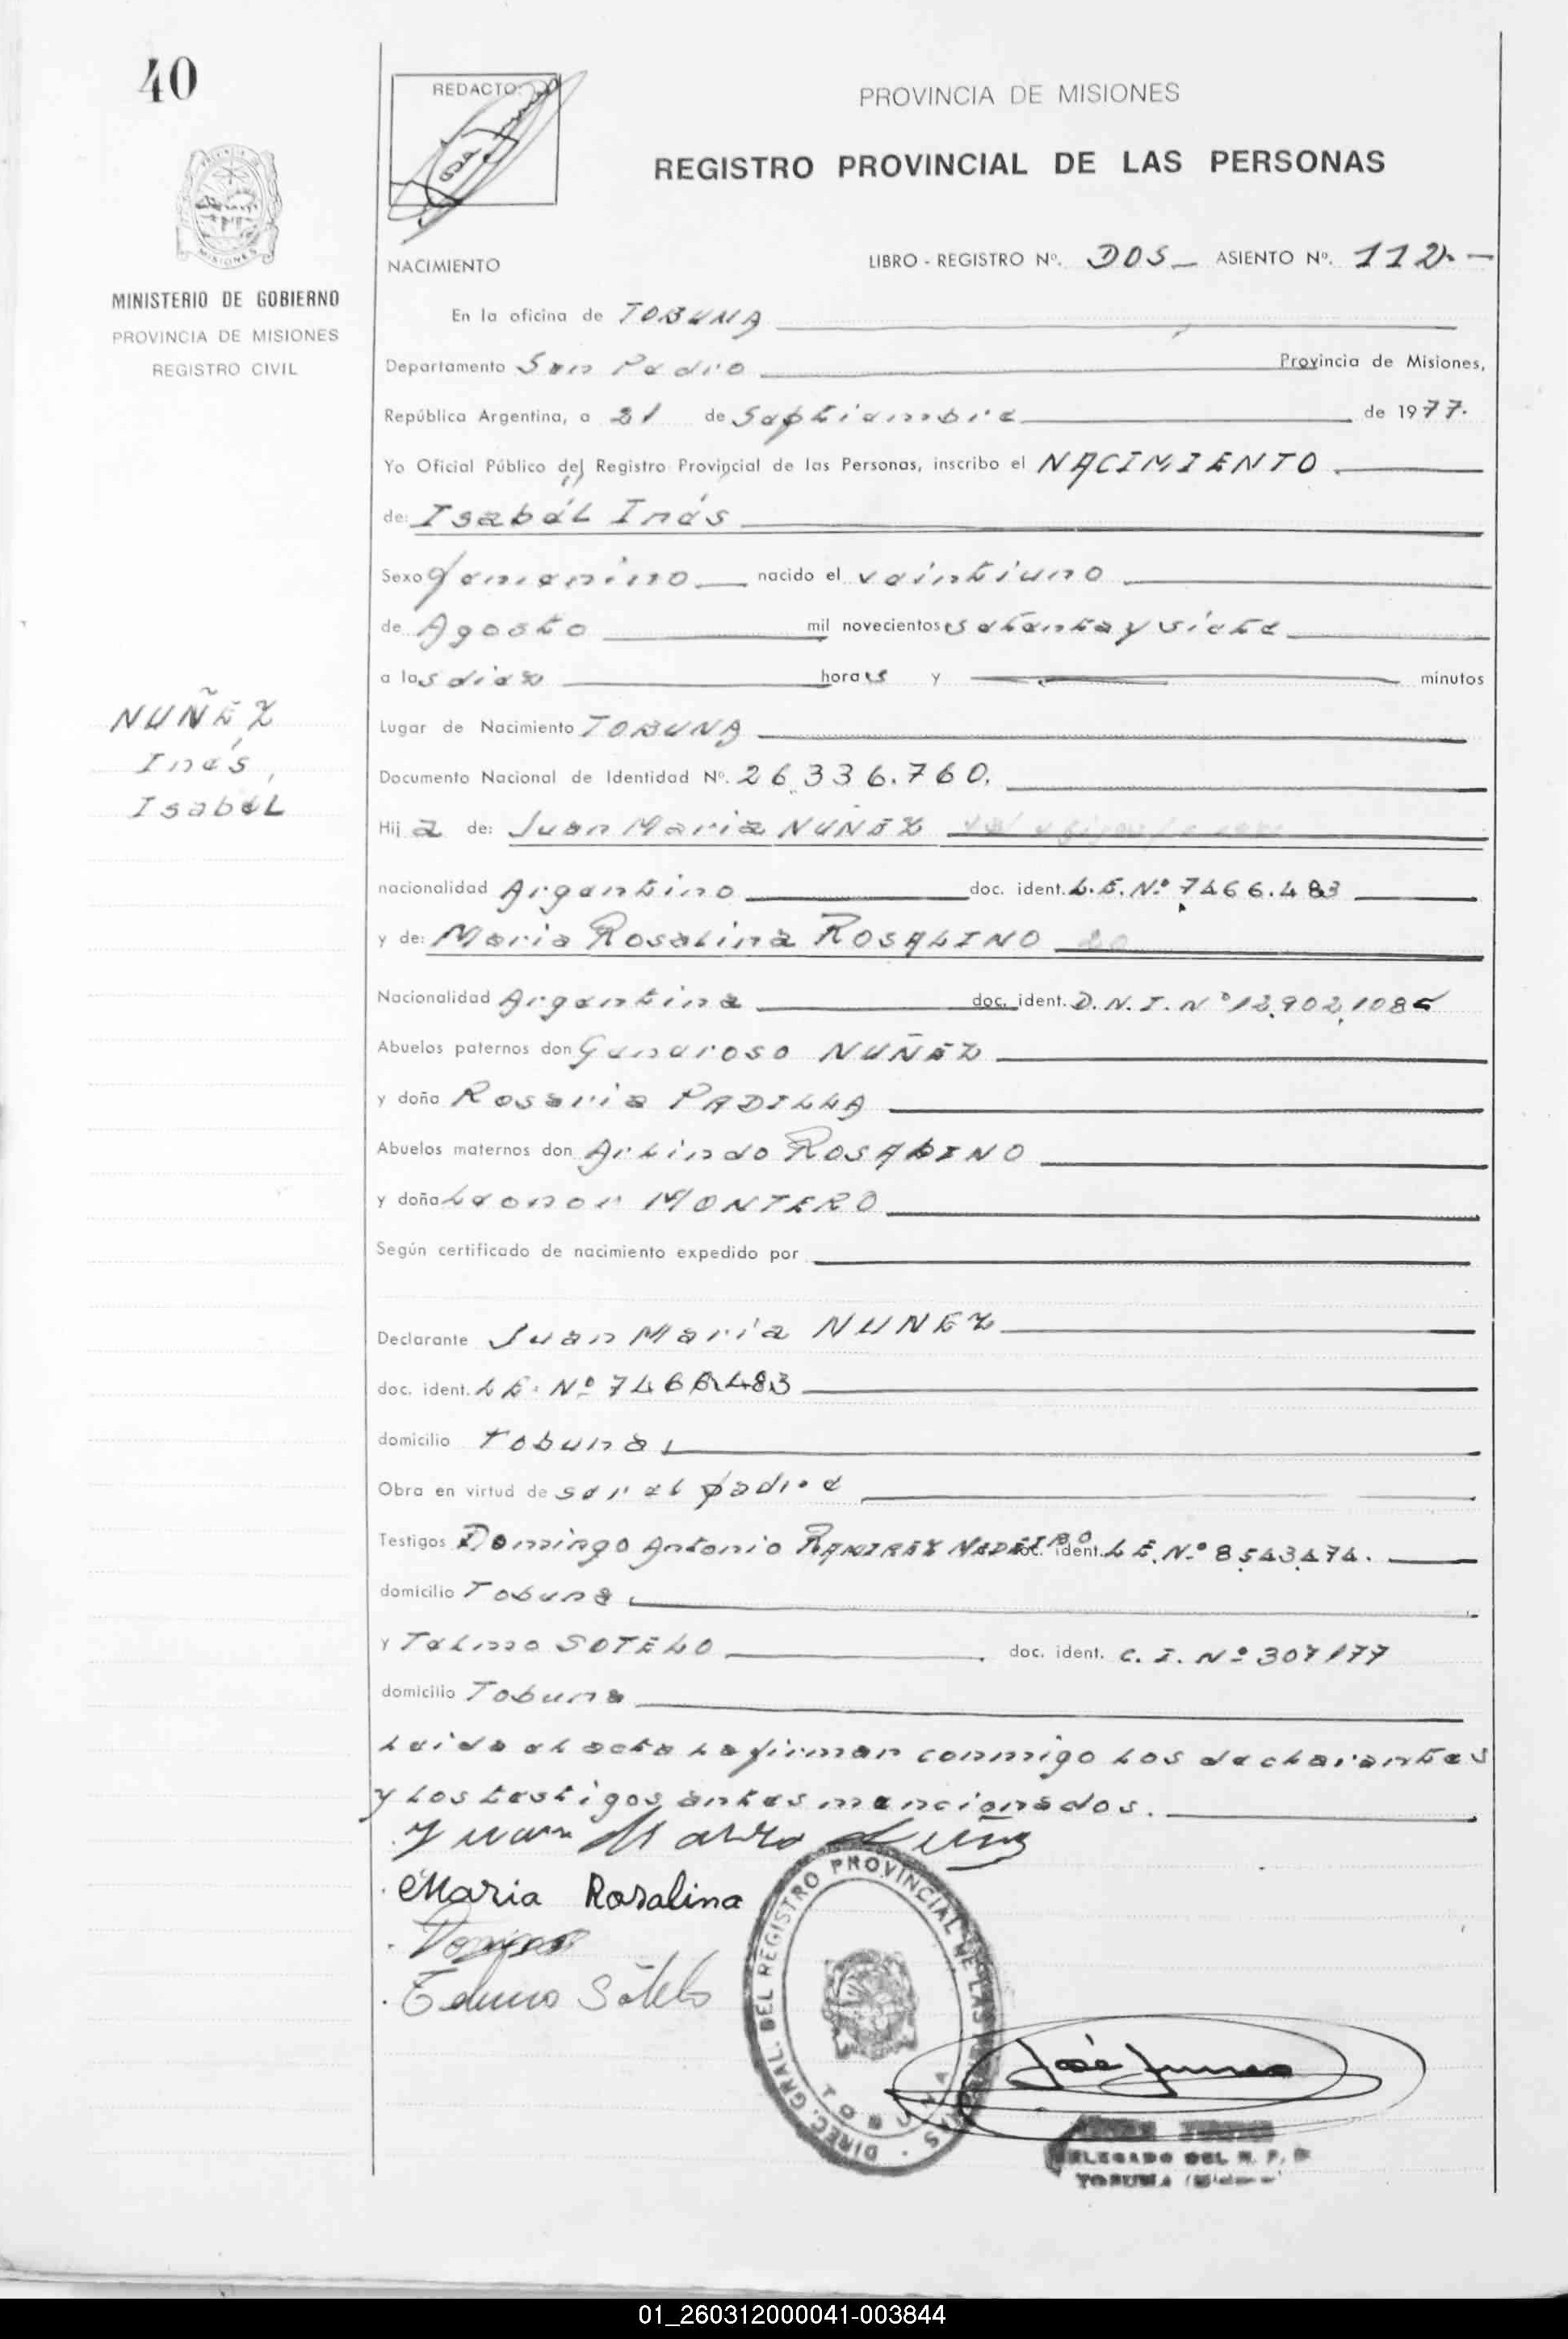 40
REDACTO:
PROVINCIA DE MISIONES
REGISTRO PROVINCIAL DE LAS PERSONAS
NACIMIENTO
LIBRO - REGISTRO Nº. DOS_ ASIENTO Nº. 112.-
MINISTERIO DE GOBIERNO
PROVINCIA DE MISIONES
REGISTRO CIVIL
En la oficina de TOBUNA
Departamento San Pedro Provincia de Misiones,
República Argentina, a 21 de Septiembre de 1977.
Yo Oficial Público del Registro Provincial de las Personas, inscribo el NACIMIENTO
de: Isabél Inés
Sexo femenino nacido el veintiuno
de Agosto mil novecientos setenta y siete
a las diez horas y minutos
NUÑEZ
Inés,
Isabel
Lugar de Nacimiento TOBUNA
Documento Nacional de Identidad Nº. 26.336.760.
Hija de: Juan Maria NUÑEZ
nacionalidad Argentino doc. ident. L.E. Nº 7466.483
y de: Maria Rosalina ROSALINO
Nacionalidad Argentina doc. ident. D.N.I. Nº 12.902.108
Abuelos paternos don Generoso NUÑEZ
y doña Rosaria PADILLA
Abuelos maternos don Arlindo ROSALINO
y doña Leonor MONTERO
Según certificado de nacimiento expedido por
Declarante Juan Maria NUNEZ
doc. ident. L E. Nº 7466.483
domicilio Tobuna
Obra en virtud de ser el padre
Testigos Domingo Antonio RAMIREZ doc. ident. L E. Nº 8543474.
domicilio Tobuna
y Telmo SOTELO doc. ident. C. I. Nº 307177
domicilio Tobuna
Leida el acta la firman conmigo los declarantes
y los testigos antes mencionados.
Juan Maria Nuñez
Maria Rosalina
Telmo Sotelo
DIREC. GRAL. DEL REGISTRO PROVINCIAL DE LAS PERSONAS
TOBUNA
José
DELEGADO DEL R. P. P.
TOBUNA (Misiones)
01_260312000041-003844